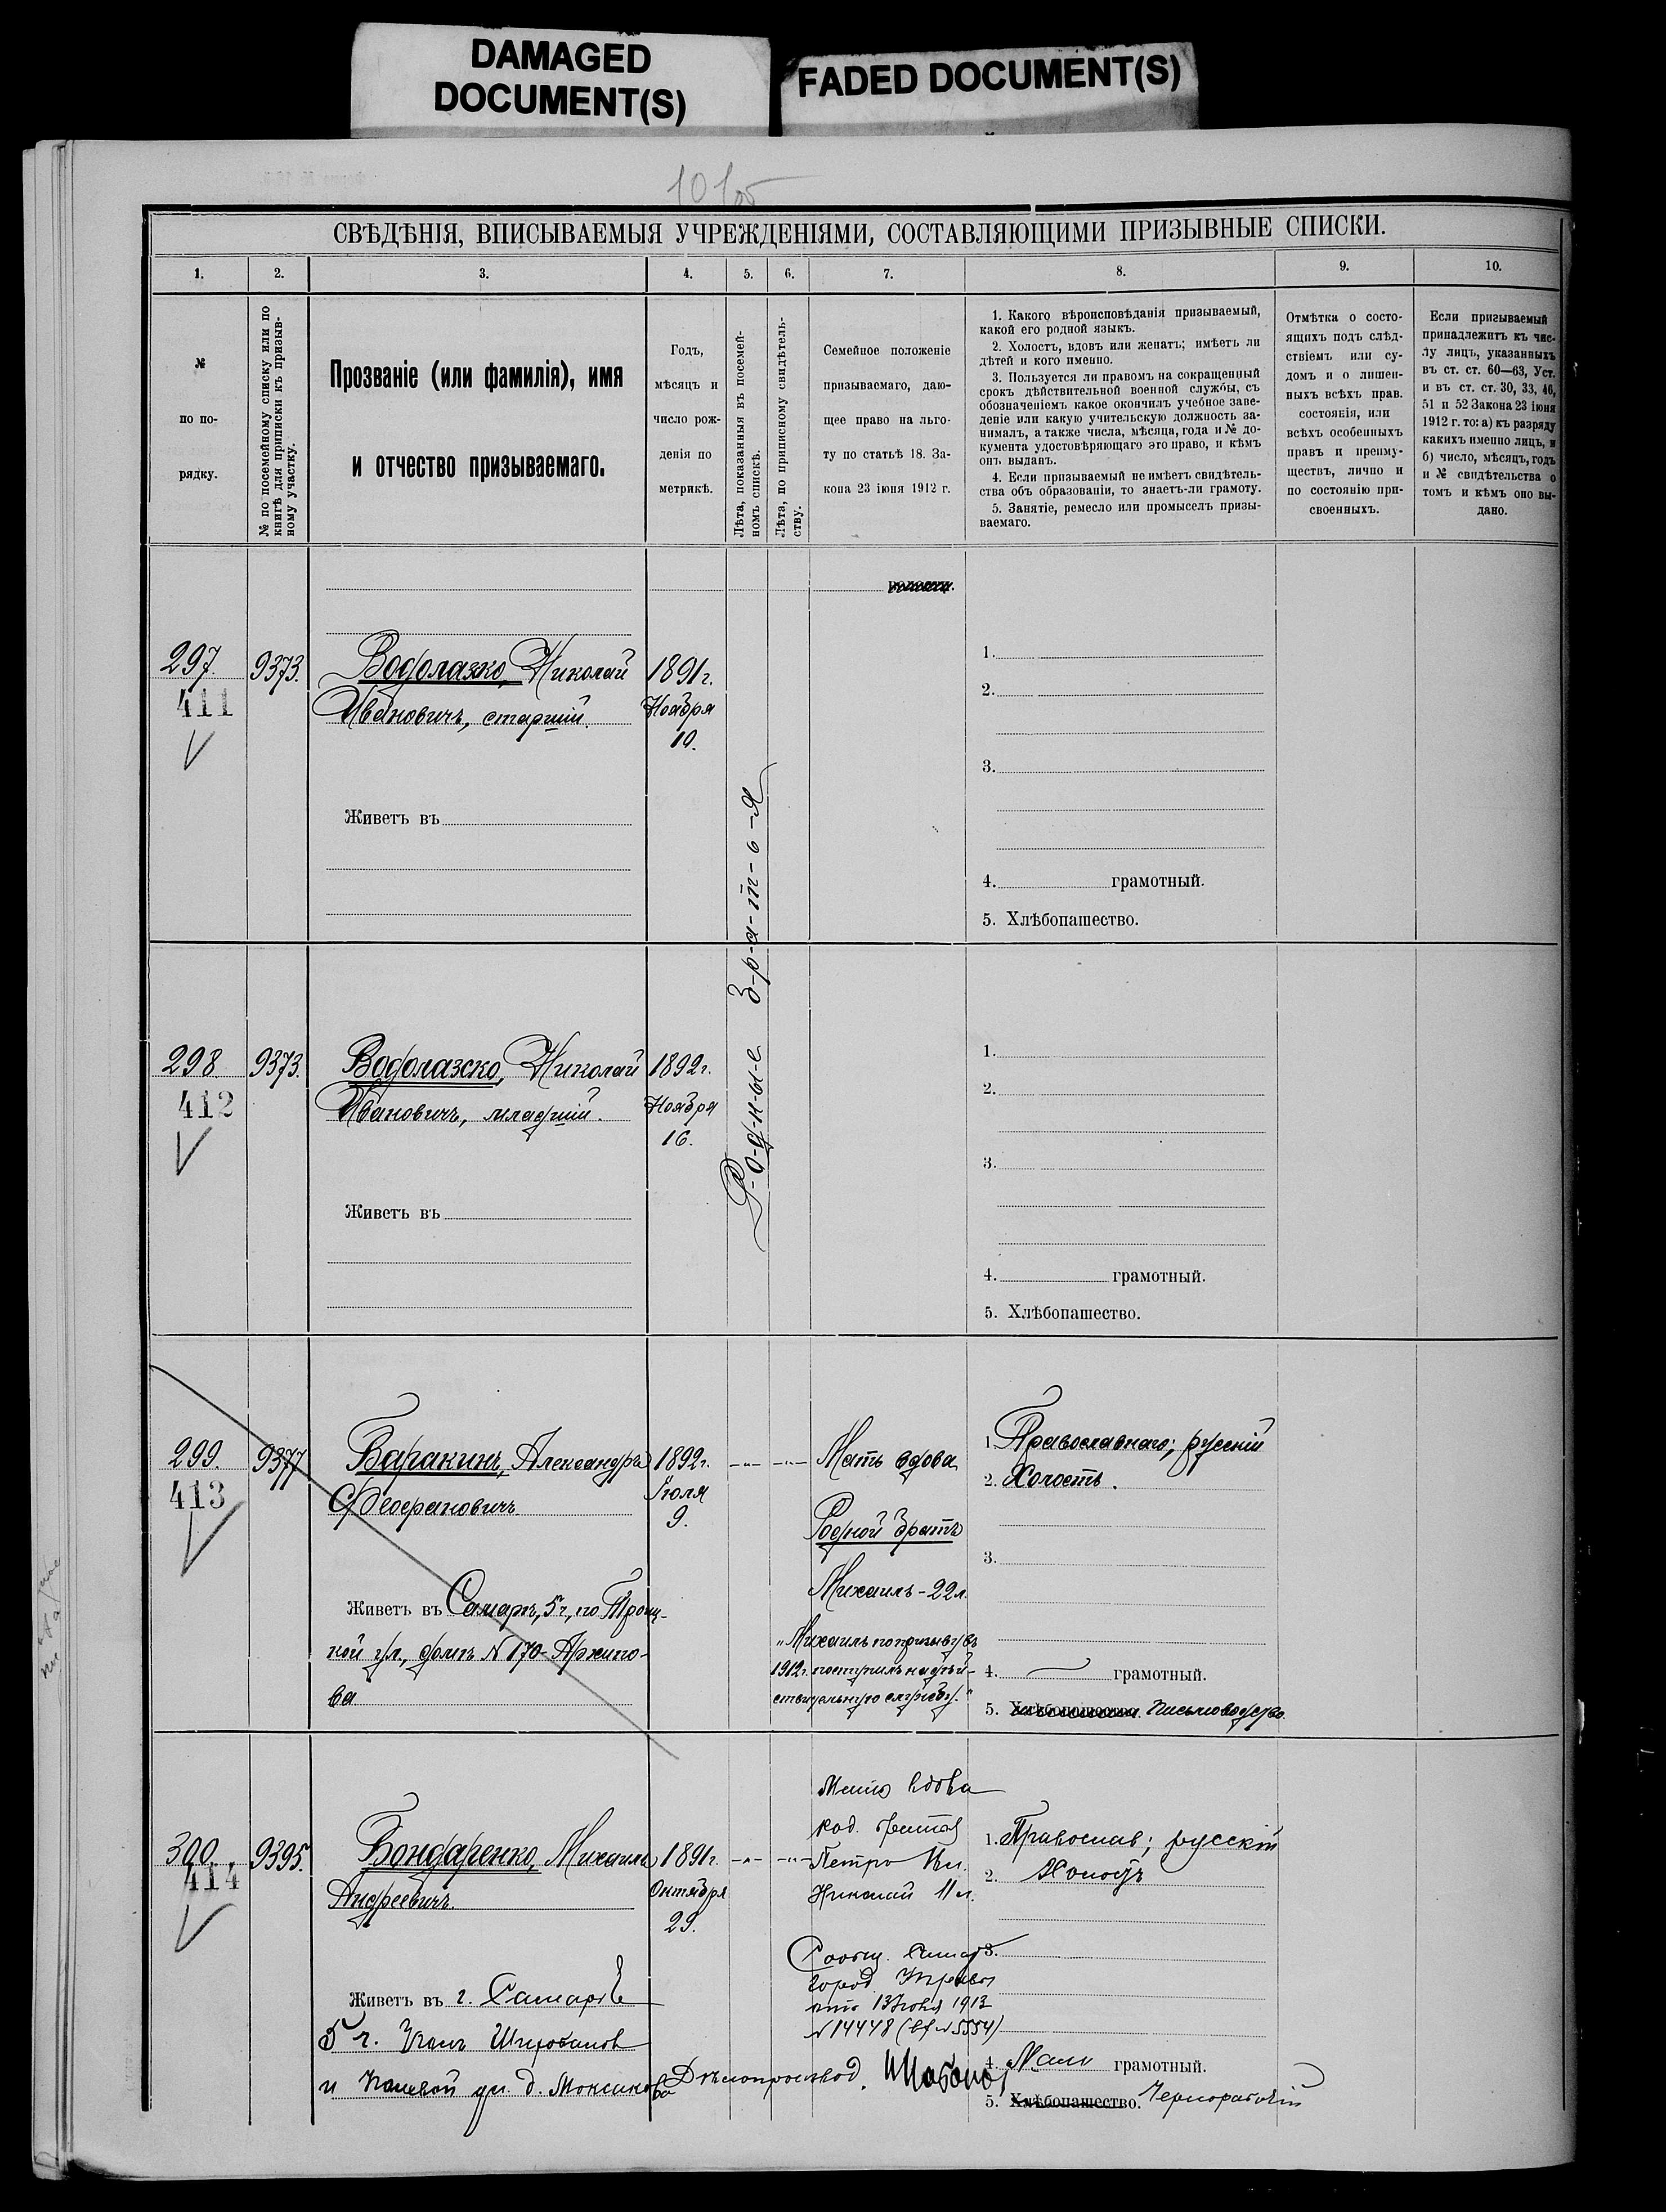 DAMAGED
DOCUMENT(S)
FADED DOCUMENT(S)
101об
СВѢДѢНІЯ, ВПИСЫВАЕМЫЯ УЧРЕЖДЕНІЯМИ, СОСТАВЛЯЮЩИМИ ПРИЗЫВНЫЕ СПИСКИ.
1. 2. 3. 4. 5. 6. 7. 8. 9. 10.
№
по по-
рядку.
№ по посемейному списку или по
книгѣ для приписки къ призыв-
ному участку.
Прозваніе (или фамилія), имя
и отчество призываемаго.
Годъ,
мѣсяцъ и
число рож-
денія по
метрикѣ.
Лѣта, показанныя въ посемей-
номъ спискѣ.
Лѣта, по приписному свидѣтель-
ству.
Семейное положеніе
призываемаго, даю-
щее право на льго-
ту по статьѣ 18. За-
кона 23 іюня 1912 г.
1. Какого вѣроисповѣданія призываемый,
какой его родной языкъ.
2. Холостъ, вдовъ или женатъ; имѣетъ ли
дѣтей и кого именно.
3. Пользуется ли правомъ на сокращенный
срокъ дѣйствительной военной службы, съ
обозначеніемъ какое окончилъ учебное заве-
деніе или какую учительскую должность за-
нималъ, а также числа, мѣсяца, года и № до-
кумента удостовѣряющаго это право, и кѣмъ
онъ выданъ.
4. Если призываемый не имѣетъ свидѣтель-
ства объ образованіи, то знаетъ-ли грамоту.
5. Занятіе, ремесло или промыселъ призы-
ваемаго.
Отмѣтка о состо-
ящихъ подъ слѣд-
ствіемъ или су-
домъ и о лишен-
ныхъ всѣхъ прав.
состоянія, или
всѣхъ особенныхъ
правъ и преиму-
ществъ, лично и
по состоянію при-
своенныхъ.
Если призываемый
принадлежитъ къ чис-
лу лицъ, указанныхъ
въ ст. ст. 60—63, Уст.
и въ ст. ст. 30, 33, 46,
51 и 52 Закона 23 іюня
1912 г. то: а) къ разряду
какихъ именно лицъ, и
б) число, мѣсяцъ, годъ
и № свидѣтельства о
томъ и кѣмъ оно вы-
дано.
волости.
297. 9373. Водолазко, Николай 1891 г.
411 Ивановичъ, старшій. Ноября
19.
Живетъ въ
1.
2.
3.
4. грамотный.
5. Хлѣбопашество.
Р-о-д-н-ы-е б-р-а-т-ь-я
298. 9373. Водолазско, Николай 1892 г.
412 Ивановичъ, младшій. Ноября
16.
Живетъ въ
1.
2.
3.
4. грамотный.
5. Хлѣбопашество.
299. 9377 Баракинъ, Александръ 1892 г. -"- -"- Мать вдова
413 Ѳеофановичъ Іюля
9.
Родной братъ
Михаилъ - 22 л.
Живетъ въ Самарѣ, 5 ч, по Троиц-
кой ул., домъ № 170 - Архипо-
ва
"Михаилъ по призыву въ
1912 г. поступилъ на дѣй-
ствительную службу."
1. Православнаго; русскій
2. Холостъ.
3.
4. грамотный.
5. Хлѣбопашество. Письмоводство.
300. 9395. Бондаренко, Михаилъ 1891 г. -"- -"-
414 Андреевичъ. Октября
29.
Мать вдова
род. братья
Петръ
Николай 11 л.
Сообщ. Самар
город. Управы
отъ 13 1913
№ 14448 (вх № 5554)
Живетъ въ г. Самарѣ
5 ч.
и Полевой ул. д.
Дѣлопроизвод.
1. Православ; русскій
2. Холостъ
3.
4. Мало грамотный.
5. Хлѣбопашество. Чернорабочій